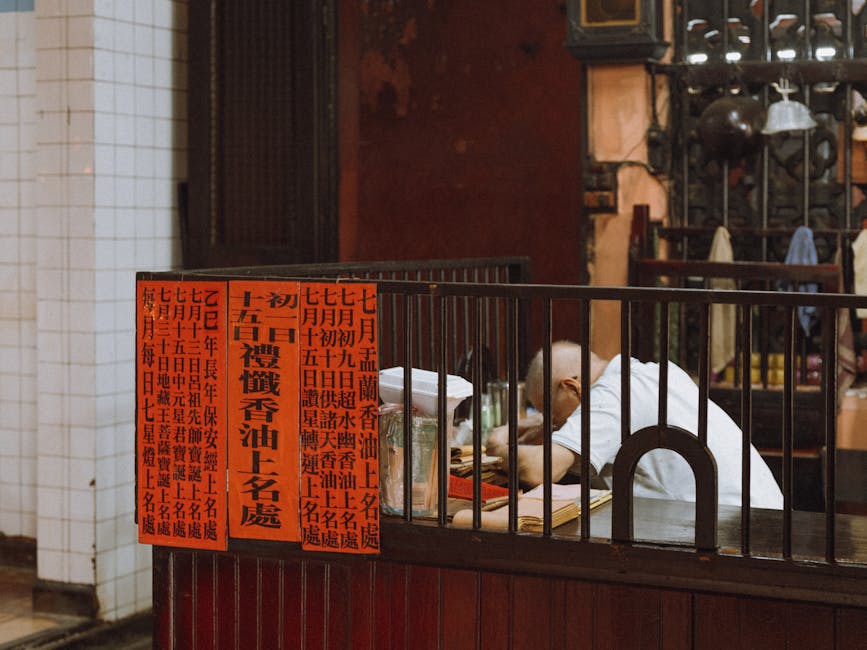 七月盂蘭香油上名處
七月初九日超水幽香油上名處
七月初十日供諸天香油上名處
七月十五日讚星轉運上名處
初一日
十五日
禮懺香油上名處
乙巳年長年保安經上名處
七月十三日呂祖先師寶誕上名處
七月十五日中元星君寶誕上名處
七月三十日地藏王菩薩寶誕上名處
每月每日七星燈上名處